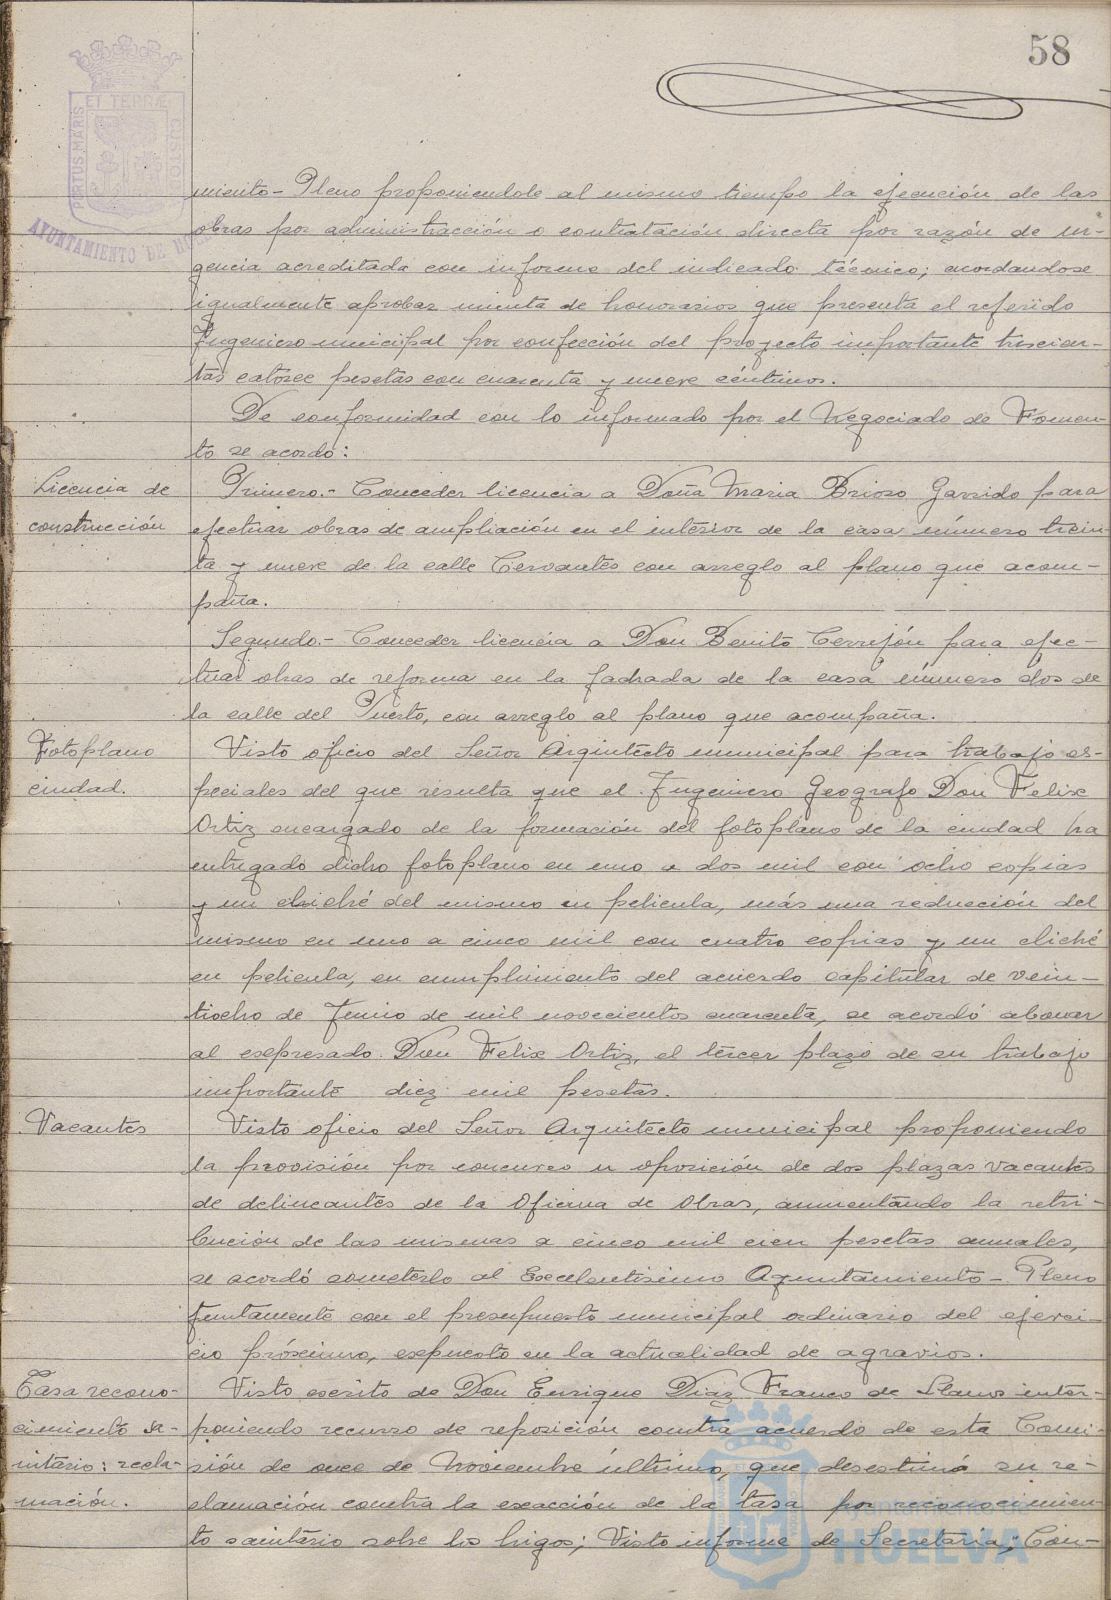 58
ET TERRÆ
PORTUS MARIS
CUSTO
AYUNTAMIENTO DE
miento - Pleno proponiendole al mismo tiempo la ejecución de las
obras por administracción o contratación directa por razón de ur-
gencia acreditada con informe del indicado técnico; acordandose
igualmente aprobar minuta de honorarios que presenta el referido
Ingeniero municipal por confección del proyecto importante trescien-
tas catorce pesetas con cuarenta y nueve céntimos.
De conformidad con lo informado por el Negociado de Fomen-
to se acordó:
Licencia de
construcción
Primero.- Conceder licencia a Doña Maria Brioso Garrido para
efectuar obras de ampliación en el interior de la casa número trein
ta y nueve de la calle Cervantes con arreglo al plano que acom-
paña.
Segundo.- Conceder licencia a Don Benito Cerrejón para efec-
tuar obras de reforma en la fachada de la casa número dos de
la calle del Puerto, con arreglo al plano que acompaña.
Fotoplano
ciudad.
Visto oficio del Señor Arquitecto municipal para trabajo es-
peciales del que resulta que el Ingeniero Geografo Don Felix
Ortiz encargado de la formación del fotoplano de la ciudad ha
entregado dicho fotoplano en uno a dos mil con ocho copias
y un cliché del mismo en pelicula, más una reducción del
mismo en uno a cinco mil con cuatro copias y un cliché
en pelicula, en cumplimiento del acuerdo capitular de vein-
tiocho de Junio de mil novecientos cuarenta, se acordó abonar
al expresado Don Felix Ortiz, el tercer plazo de su trabajo
importante diez mil pesetas.
Vacantes
Visto oficio del Señor Arquitecto municipal proponiendo
la provisión por concurso u oposición de dos plazas vacantes
de delineantes de la Oficina de Obras, aumentando la retri-
bución de las mismas a cinco mil cien pesetas anuales,
se acordó someterlo al Excelentisimo Ayuntamiento - Pleno
juntamente con el presupuesto municipal ordinario del ejerci-
cio próximo, expuesto en la actualidad de agravios.
Tasa recono-
cimiento sa-
nitario: recla-
mación.
Visto escrito de Don Enrique Diaz Franco de Llanos inter-
poniendo recurso de reposición contra acuerdo de esta Comi-
sión de once de Noviembre último, que desestimó su re-
clamación contra la exacción de la tasa por reconocimien
to sanitario sobre los higos; Visto informe de Secretaria; Con-
Ayuntamiento de
HUELVA